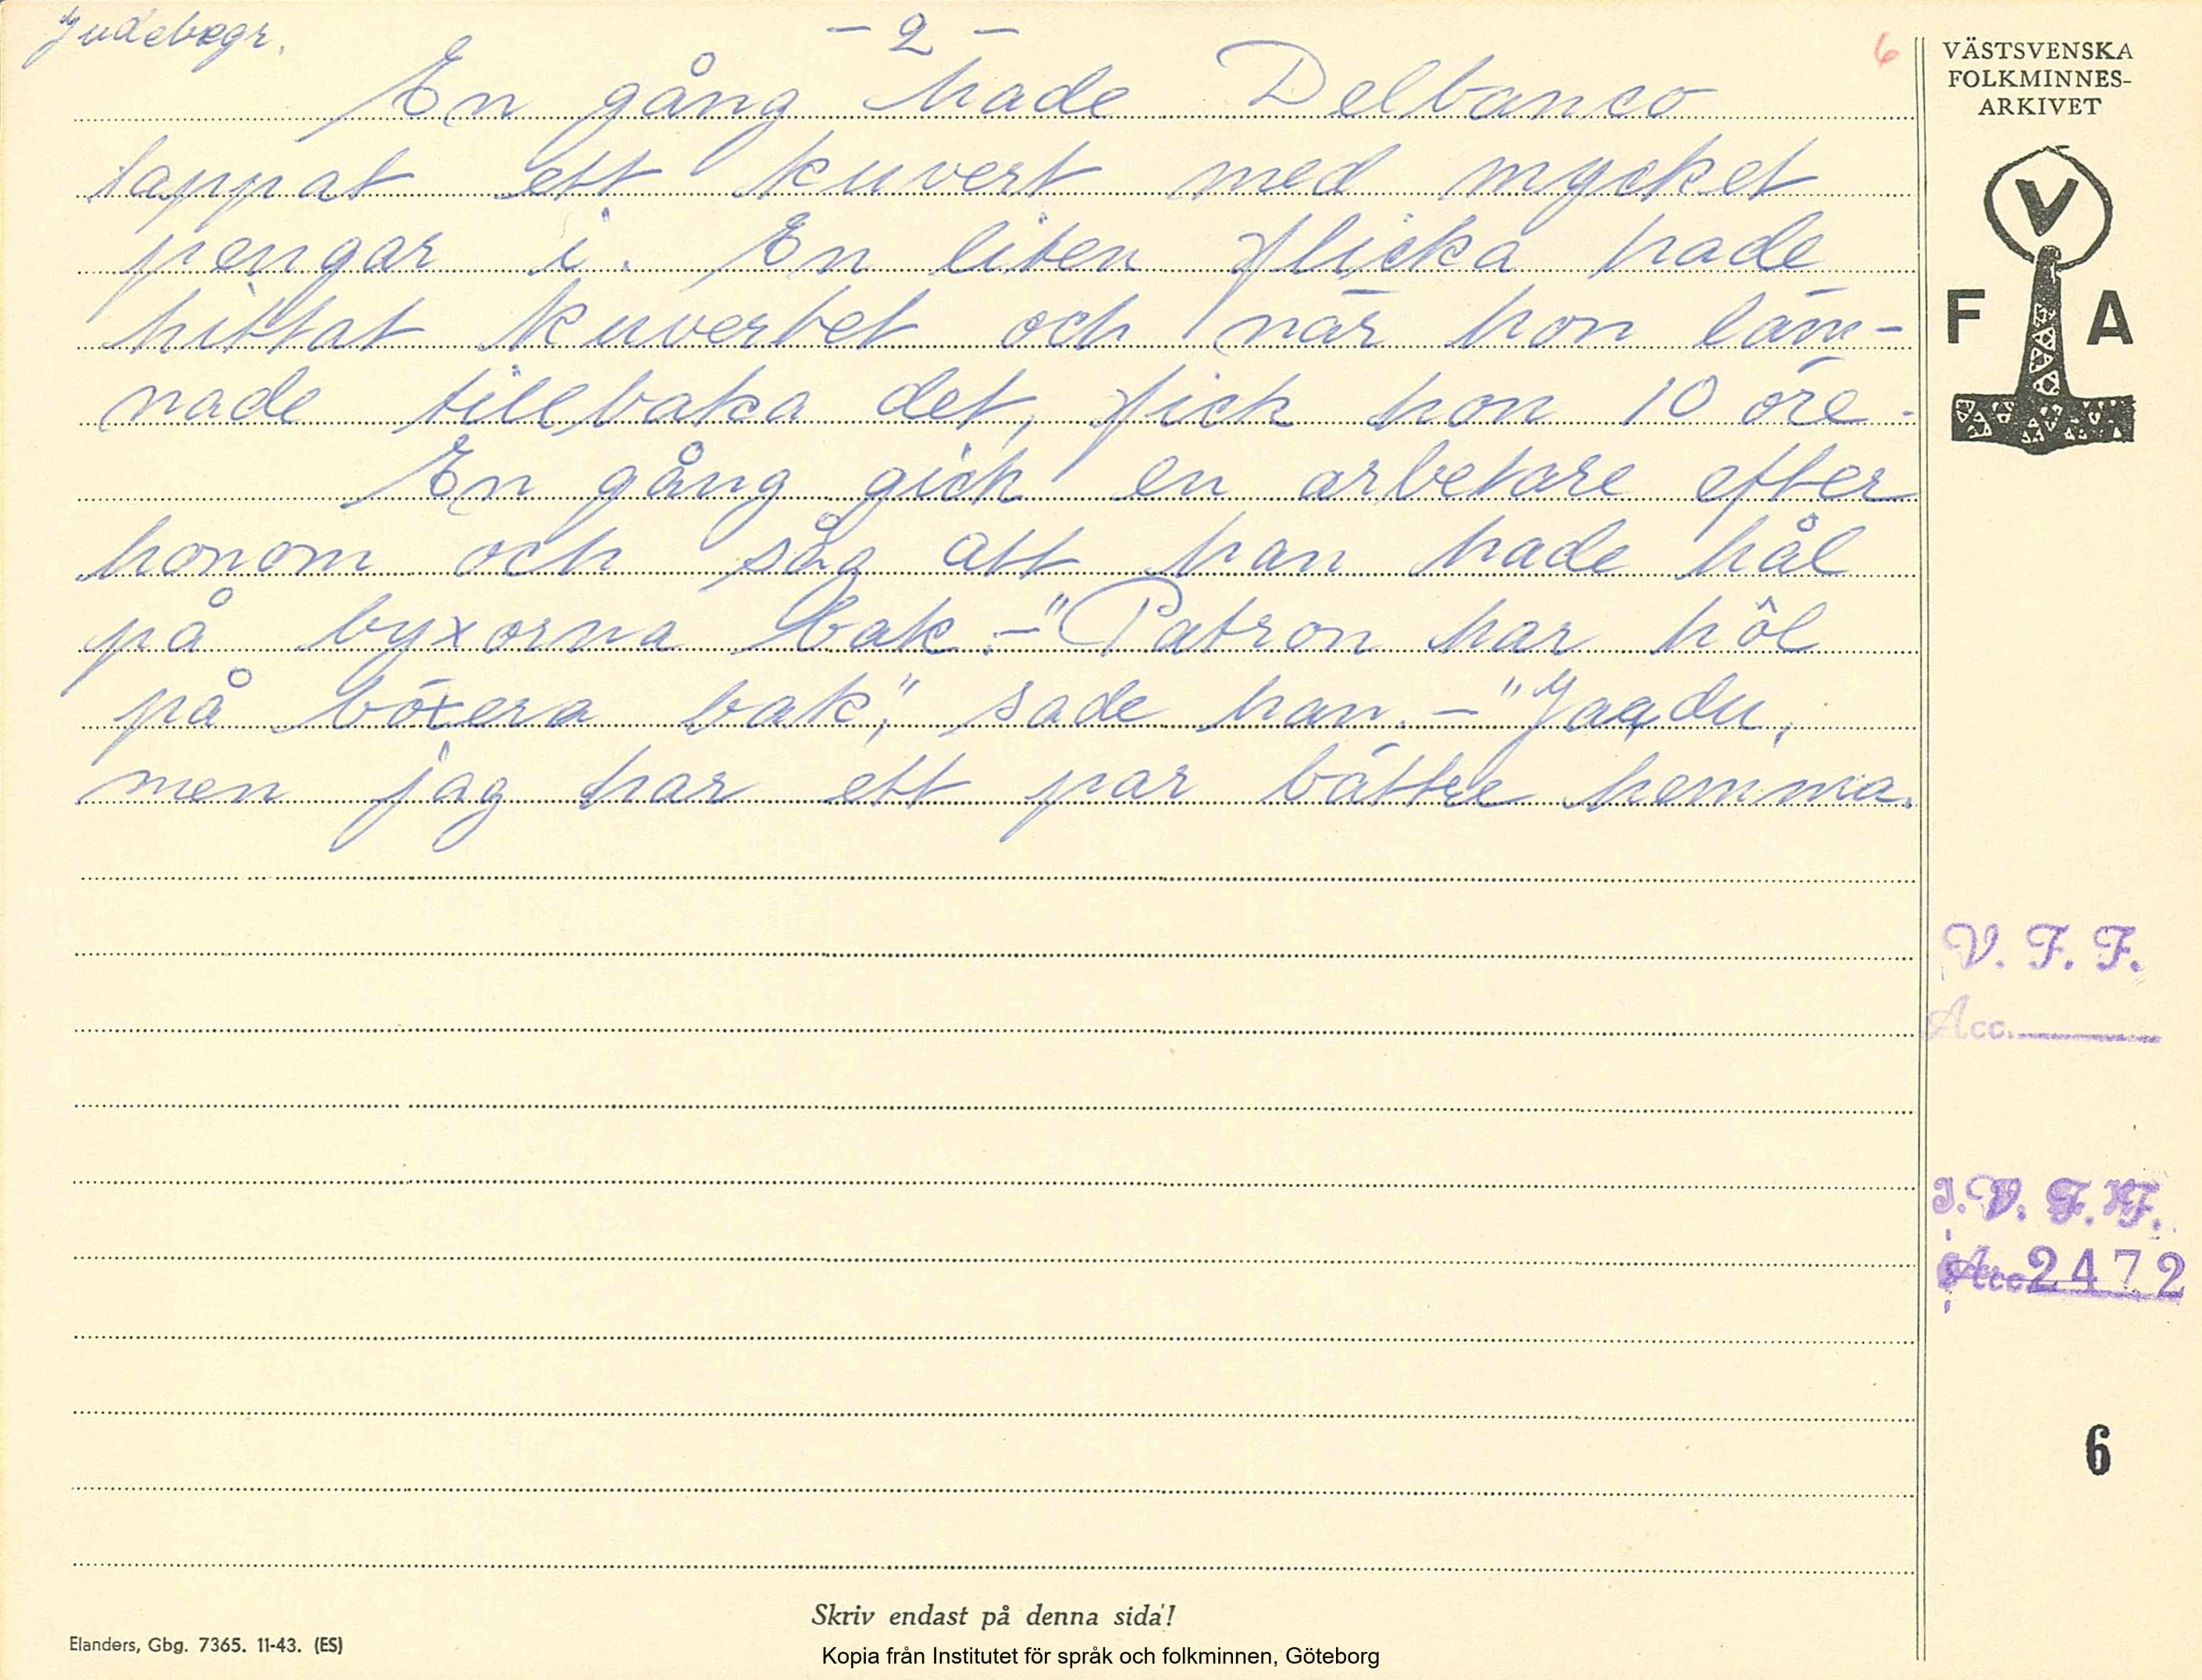 Judebegr.
- 2 -
6
En gång hade Delbanco
tappat ett kuvert med mycket
pengar i. En liten flicka hade
hittat kuvertet och när hon läm-
nade tillbaka det, fick hon 10 öre.
En gång gick en arbetare efter
honom och såg att han hade hål
på byxorna bak. - "Patron har hôl
på böxera bak", sade han. - "Jaa du,
men jag har ett par bättre hemma.
VÄSTSVENSKA
FOLKMINNES-
ARKIVET
V
F A
V. F. F.
Acc.
I. V. F. F.
Acc 2472
6
Skriv endast på denna sida!
Elanders, Gbg. 7365. 11-43. (ES)
Kopia från Institutet för språk och folkminnen, Göteborg